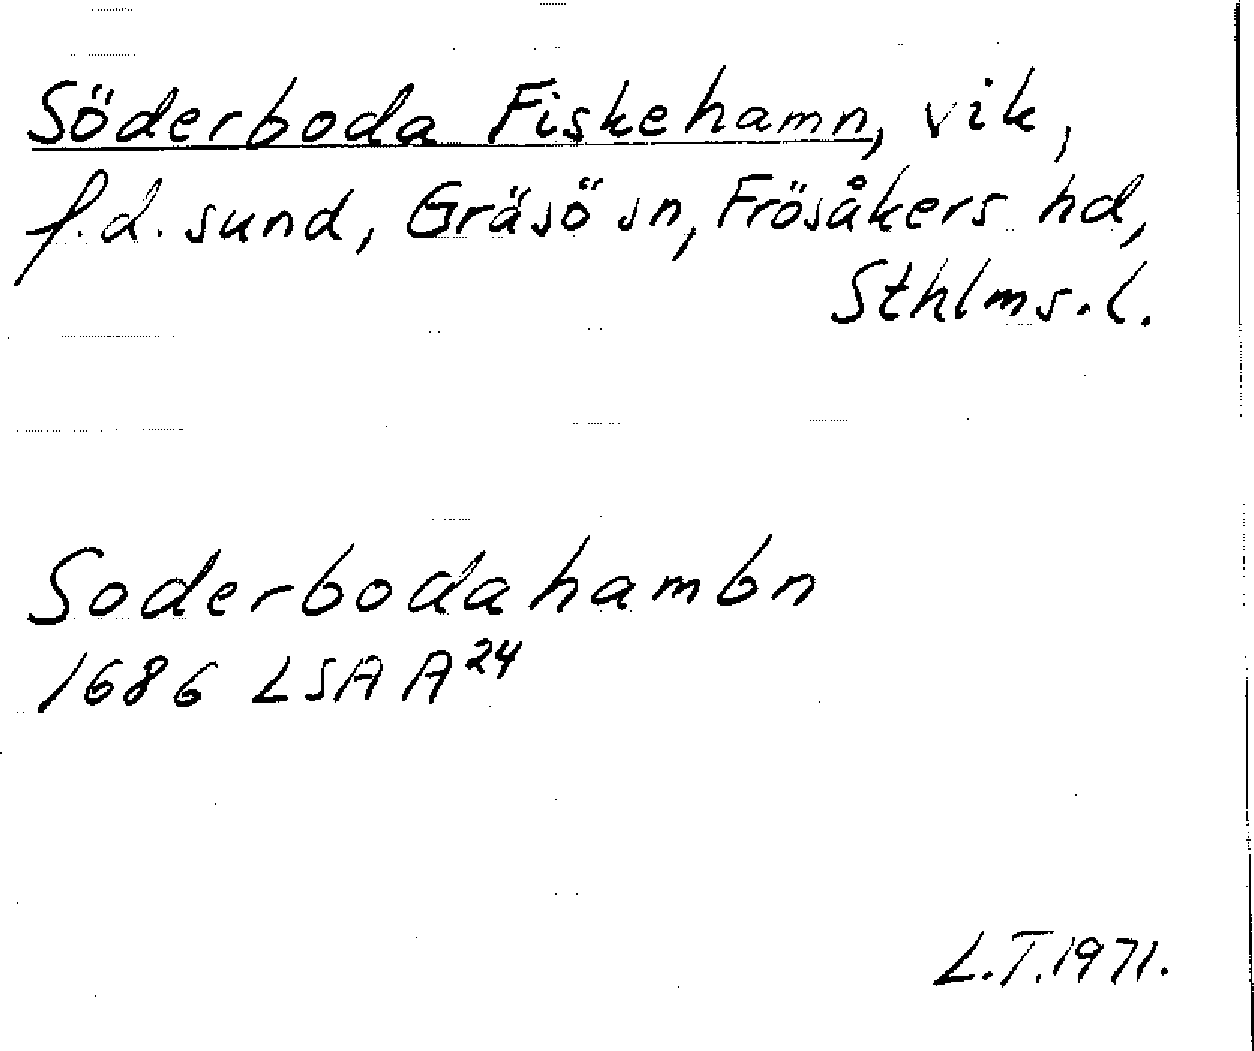 Söderboda Fiskehamn, vik,
f.d. sund, Gräsö sn, Frösåkers hd,
Sthlms. l.
Soderbodahambn
1686 LSA A²⁴
L.T. 1971.